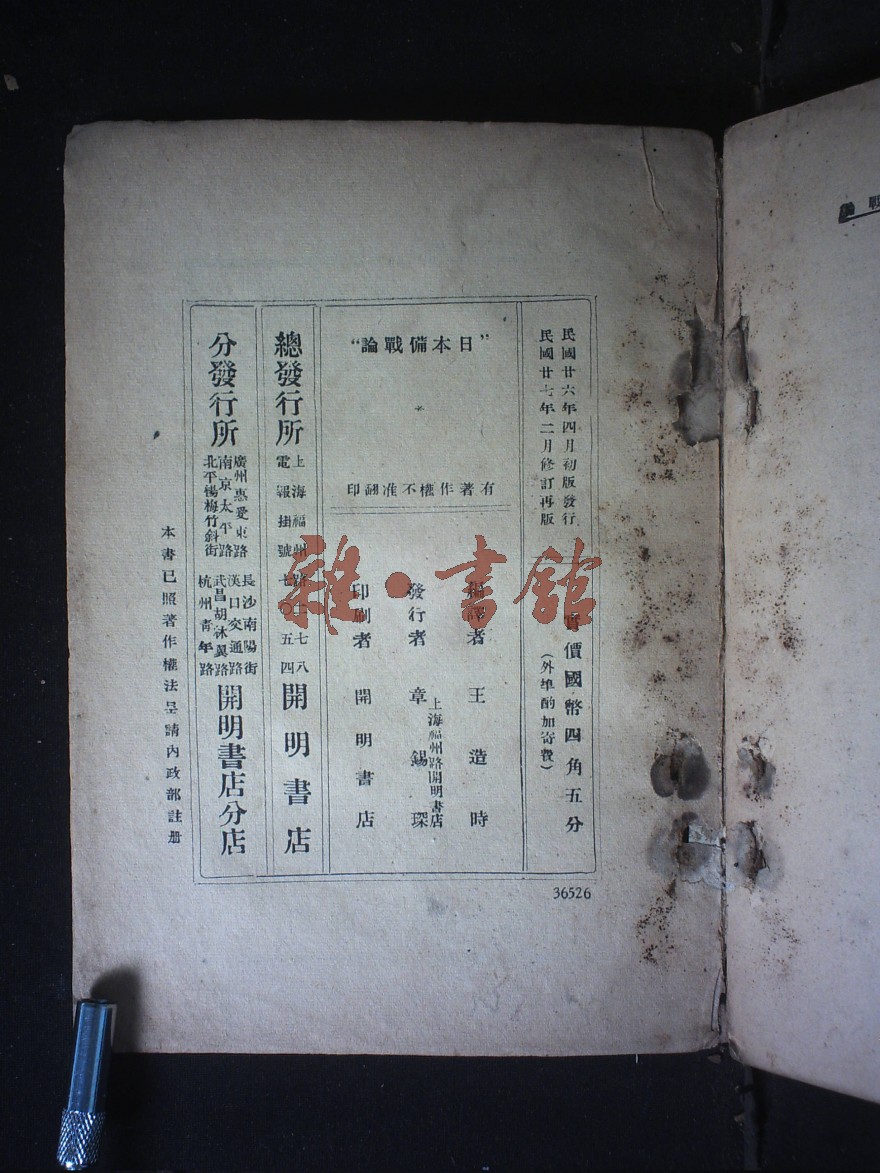 民國廿六年四月初版發行
民國廿七年二月修訂再版
實價國幣四角五分
(外埠酌加寄費)
"日本備戰論"
*
有著作權不准翻印
編譯者 王造時
發行者 章錫琛
上海福州路開明書店
印刷者 開明書店
總發行所
上海福州路二七八
電報掛號七〇五四
開明書店
分發行所
廣州惠愛東路
南京太平路
北平楊梅竹斜街
長沙南陽街
漢口交通路
武昌胡林翼路
杭州青年路
開明書店分店
本書已照著作權法呈請內政部註册
36526
雜·書館
戰